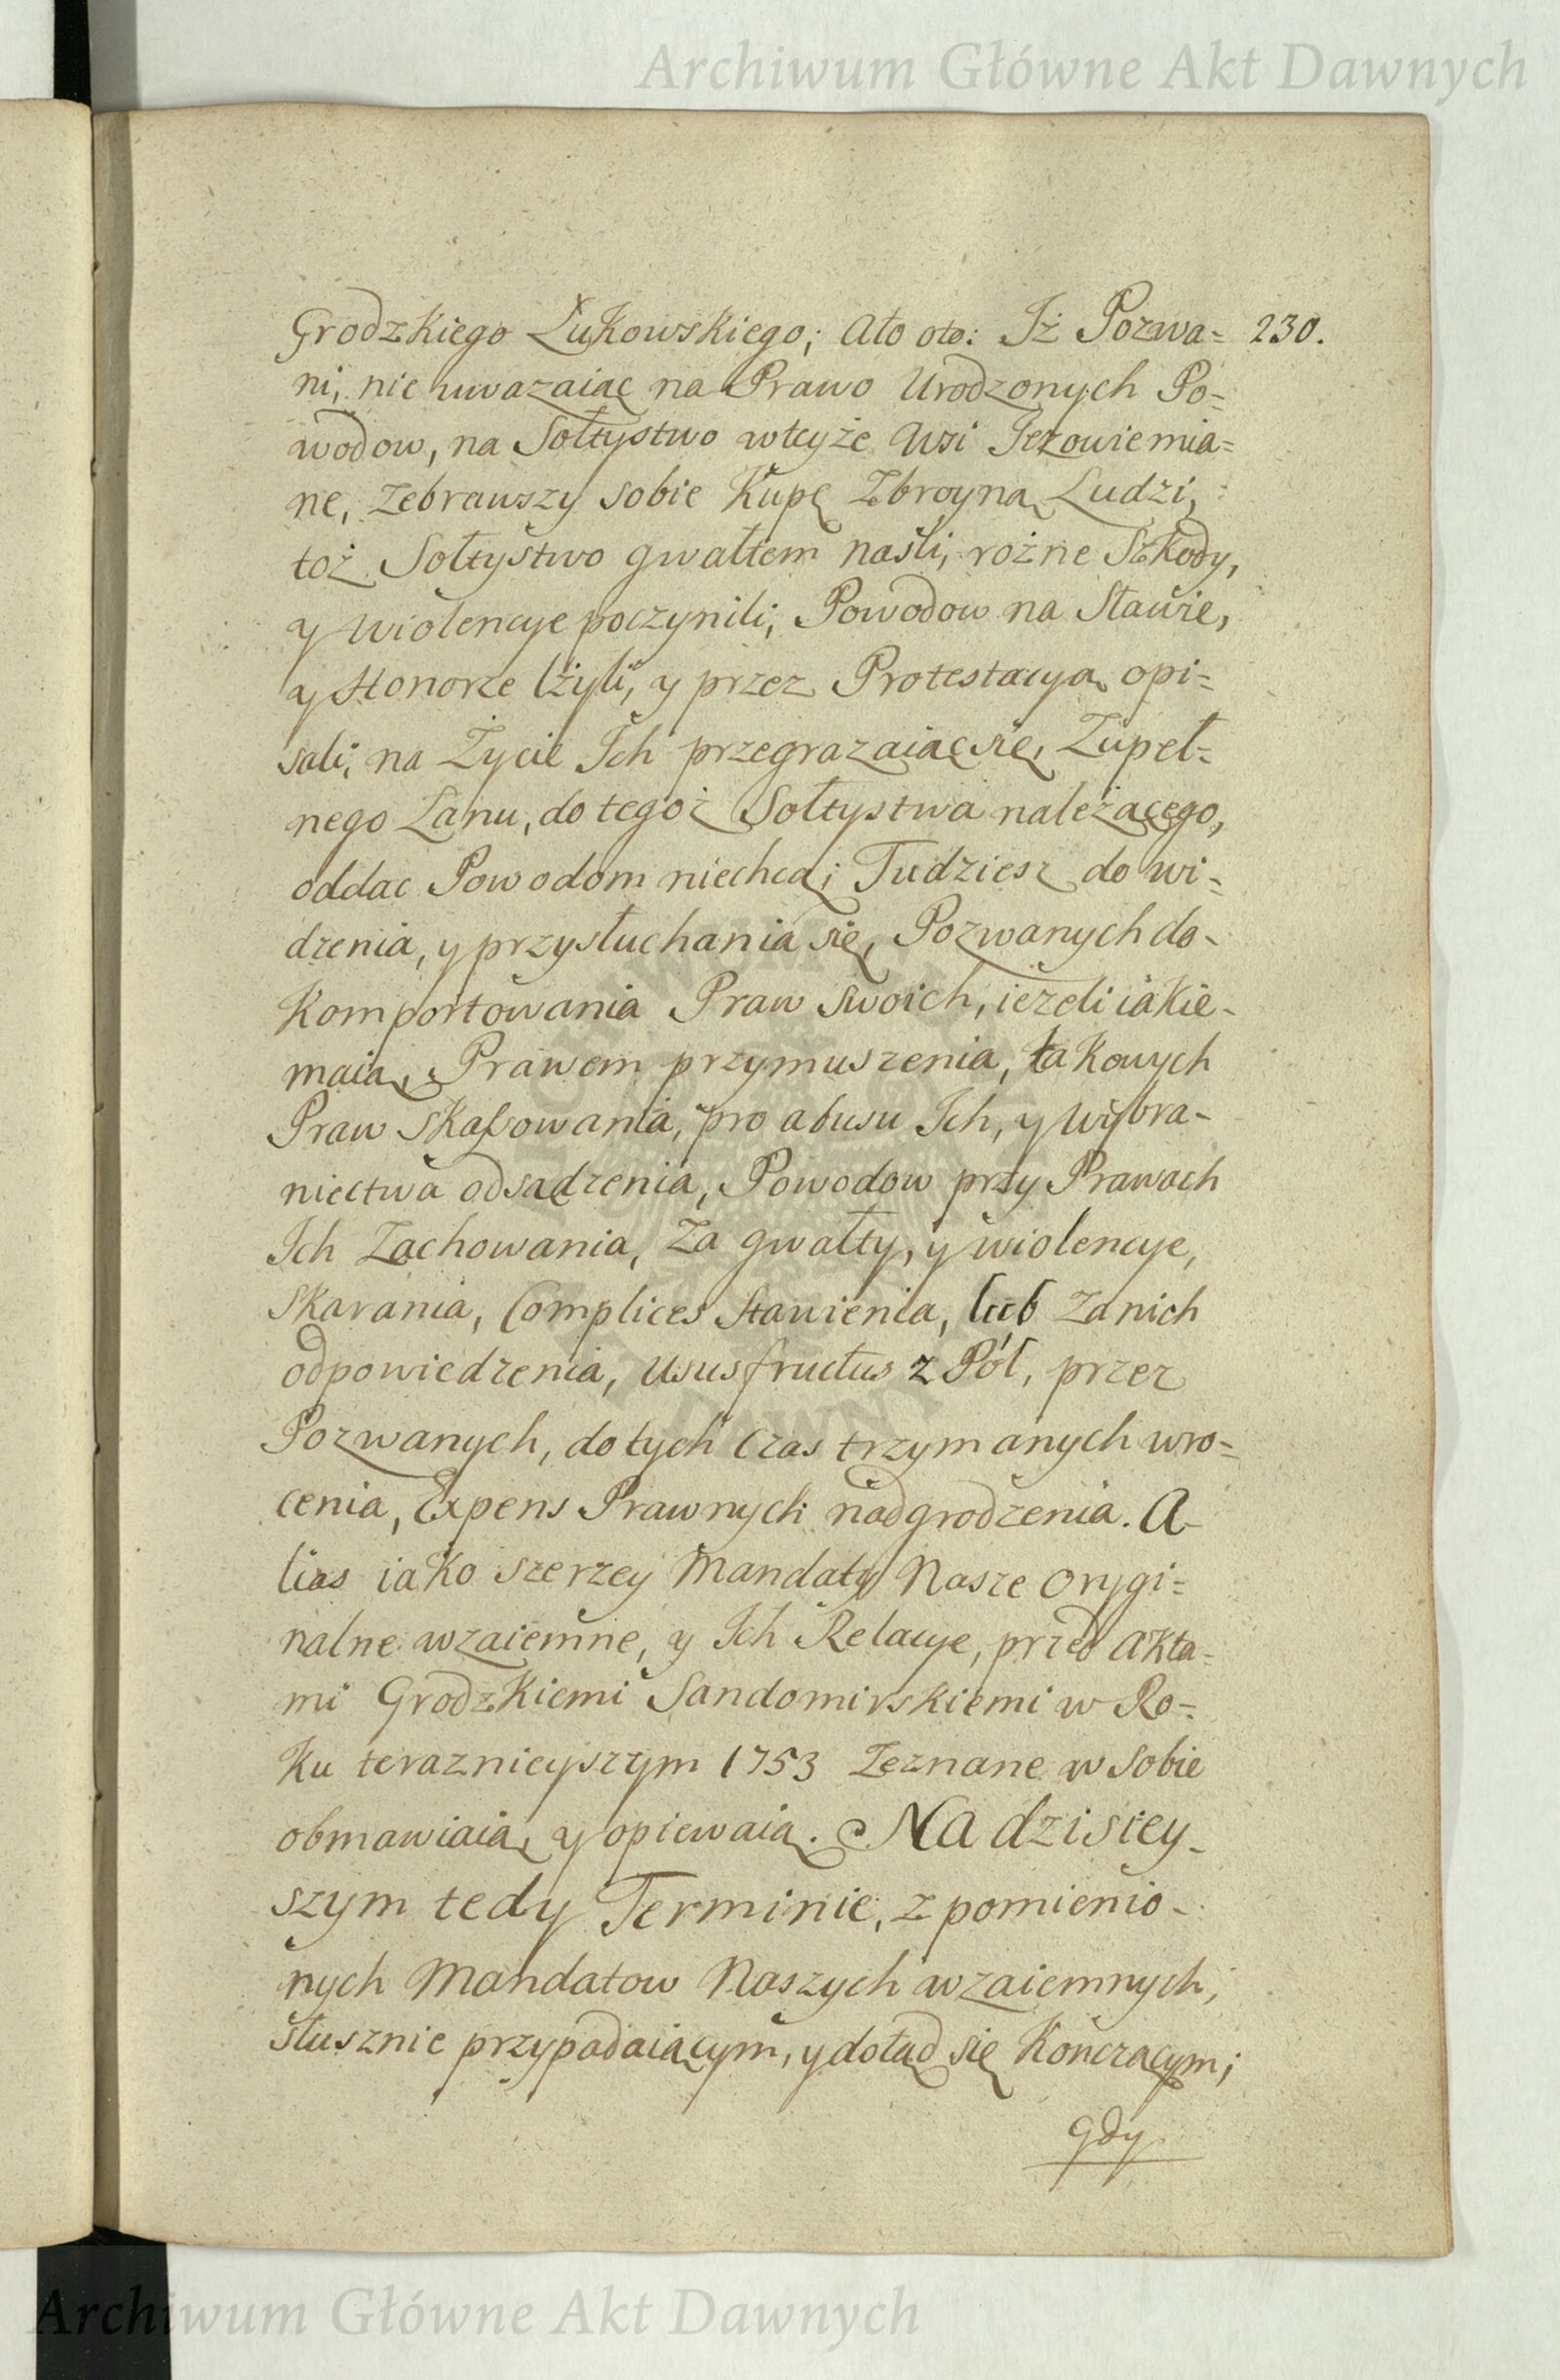 Archiwum Główne Akt Dawnych
Grodzkiego Łukowskiego; Ato oto: Iż Pozwa= 230.
ni, nie uwazaiąc na Prawo Urodzonych Po=
wodow, na Sołtystwo wteyże Wsi Jezowie mia=
ne, Zebrawszy sobie Kupę Zbroyną Ludzi,
toż Sołtystwo gwałtem naśli, rożne Szkody,
y wiolencye poczynili, Powodow na Sławie,
y Honorze lżyli, y przez Protestacyą opi=
sali, na Życie Ich przegrazaiąc się, Zupeł=
nego Łanu, do tegoż Sołtystwa należącego,
oddac Powodom niechcą; Tudziesz do wi=
dzenia, y przysłuchania się, Pozwanych do-
Komportowania Praw swoich, ieżeli iakie-
maią, Prawem przymuszenia, takowych
Praw skassowania, pro abusu Ich, y wybra-
niectwa odsądzenia, Powodow przy Prawach
Ich Zachowania, Za gwałty, y wiolencye,
Skarania, Complices Stawienia, lub Zanich
odpowiedzenia, Ususfructus z Pól, przez
Pozwanych, do tych Czas trzymanych wro=
cenia, Expens Prawnych nadgrodzenia. A-
lias iako szerzey Mandaty Nasze Orygi=
nalne wzaiemne, y Ich Relacye, przed Akta=
mi Grodzkiemi Sandomirskiemi w Ro=
ku teraznieyszym 1753 Zeznane w sobie
obmawiaią, y opiewaią. Na dzisiey-
szym tedy Terminie, z pomienio-
nych Mandatow Naszych wzaiemnych,
słusznie przypadaiącym, y dotąd się Kończącym;
gdy
Archiwum Główne Akt Dawnych